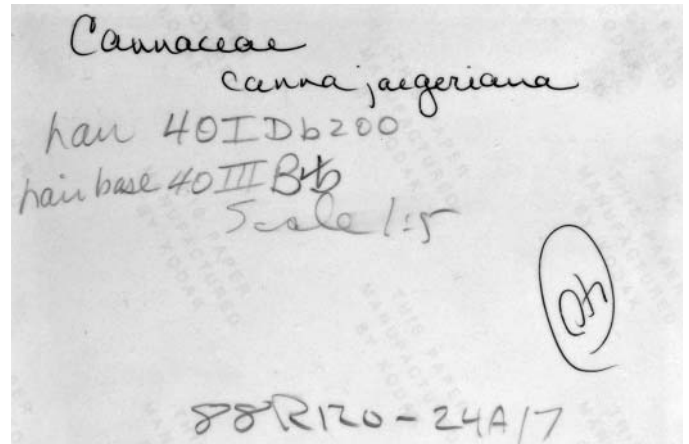 Cannaceae
canna jaegeriana
hair 40IDb200
hair base 40III Bb
Scale 1:5
40
88R120-24A/7
THIS PAPER
MANUFACTURED
BY KODAK